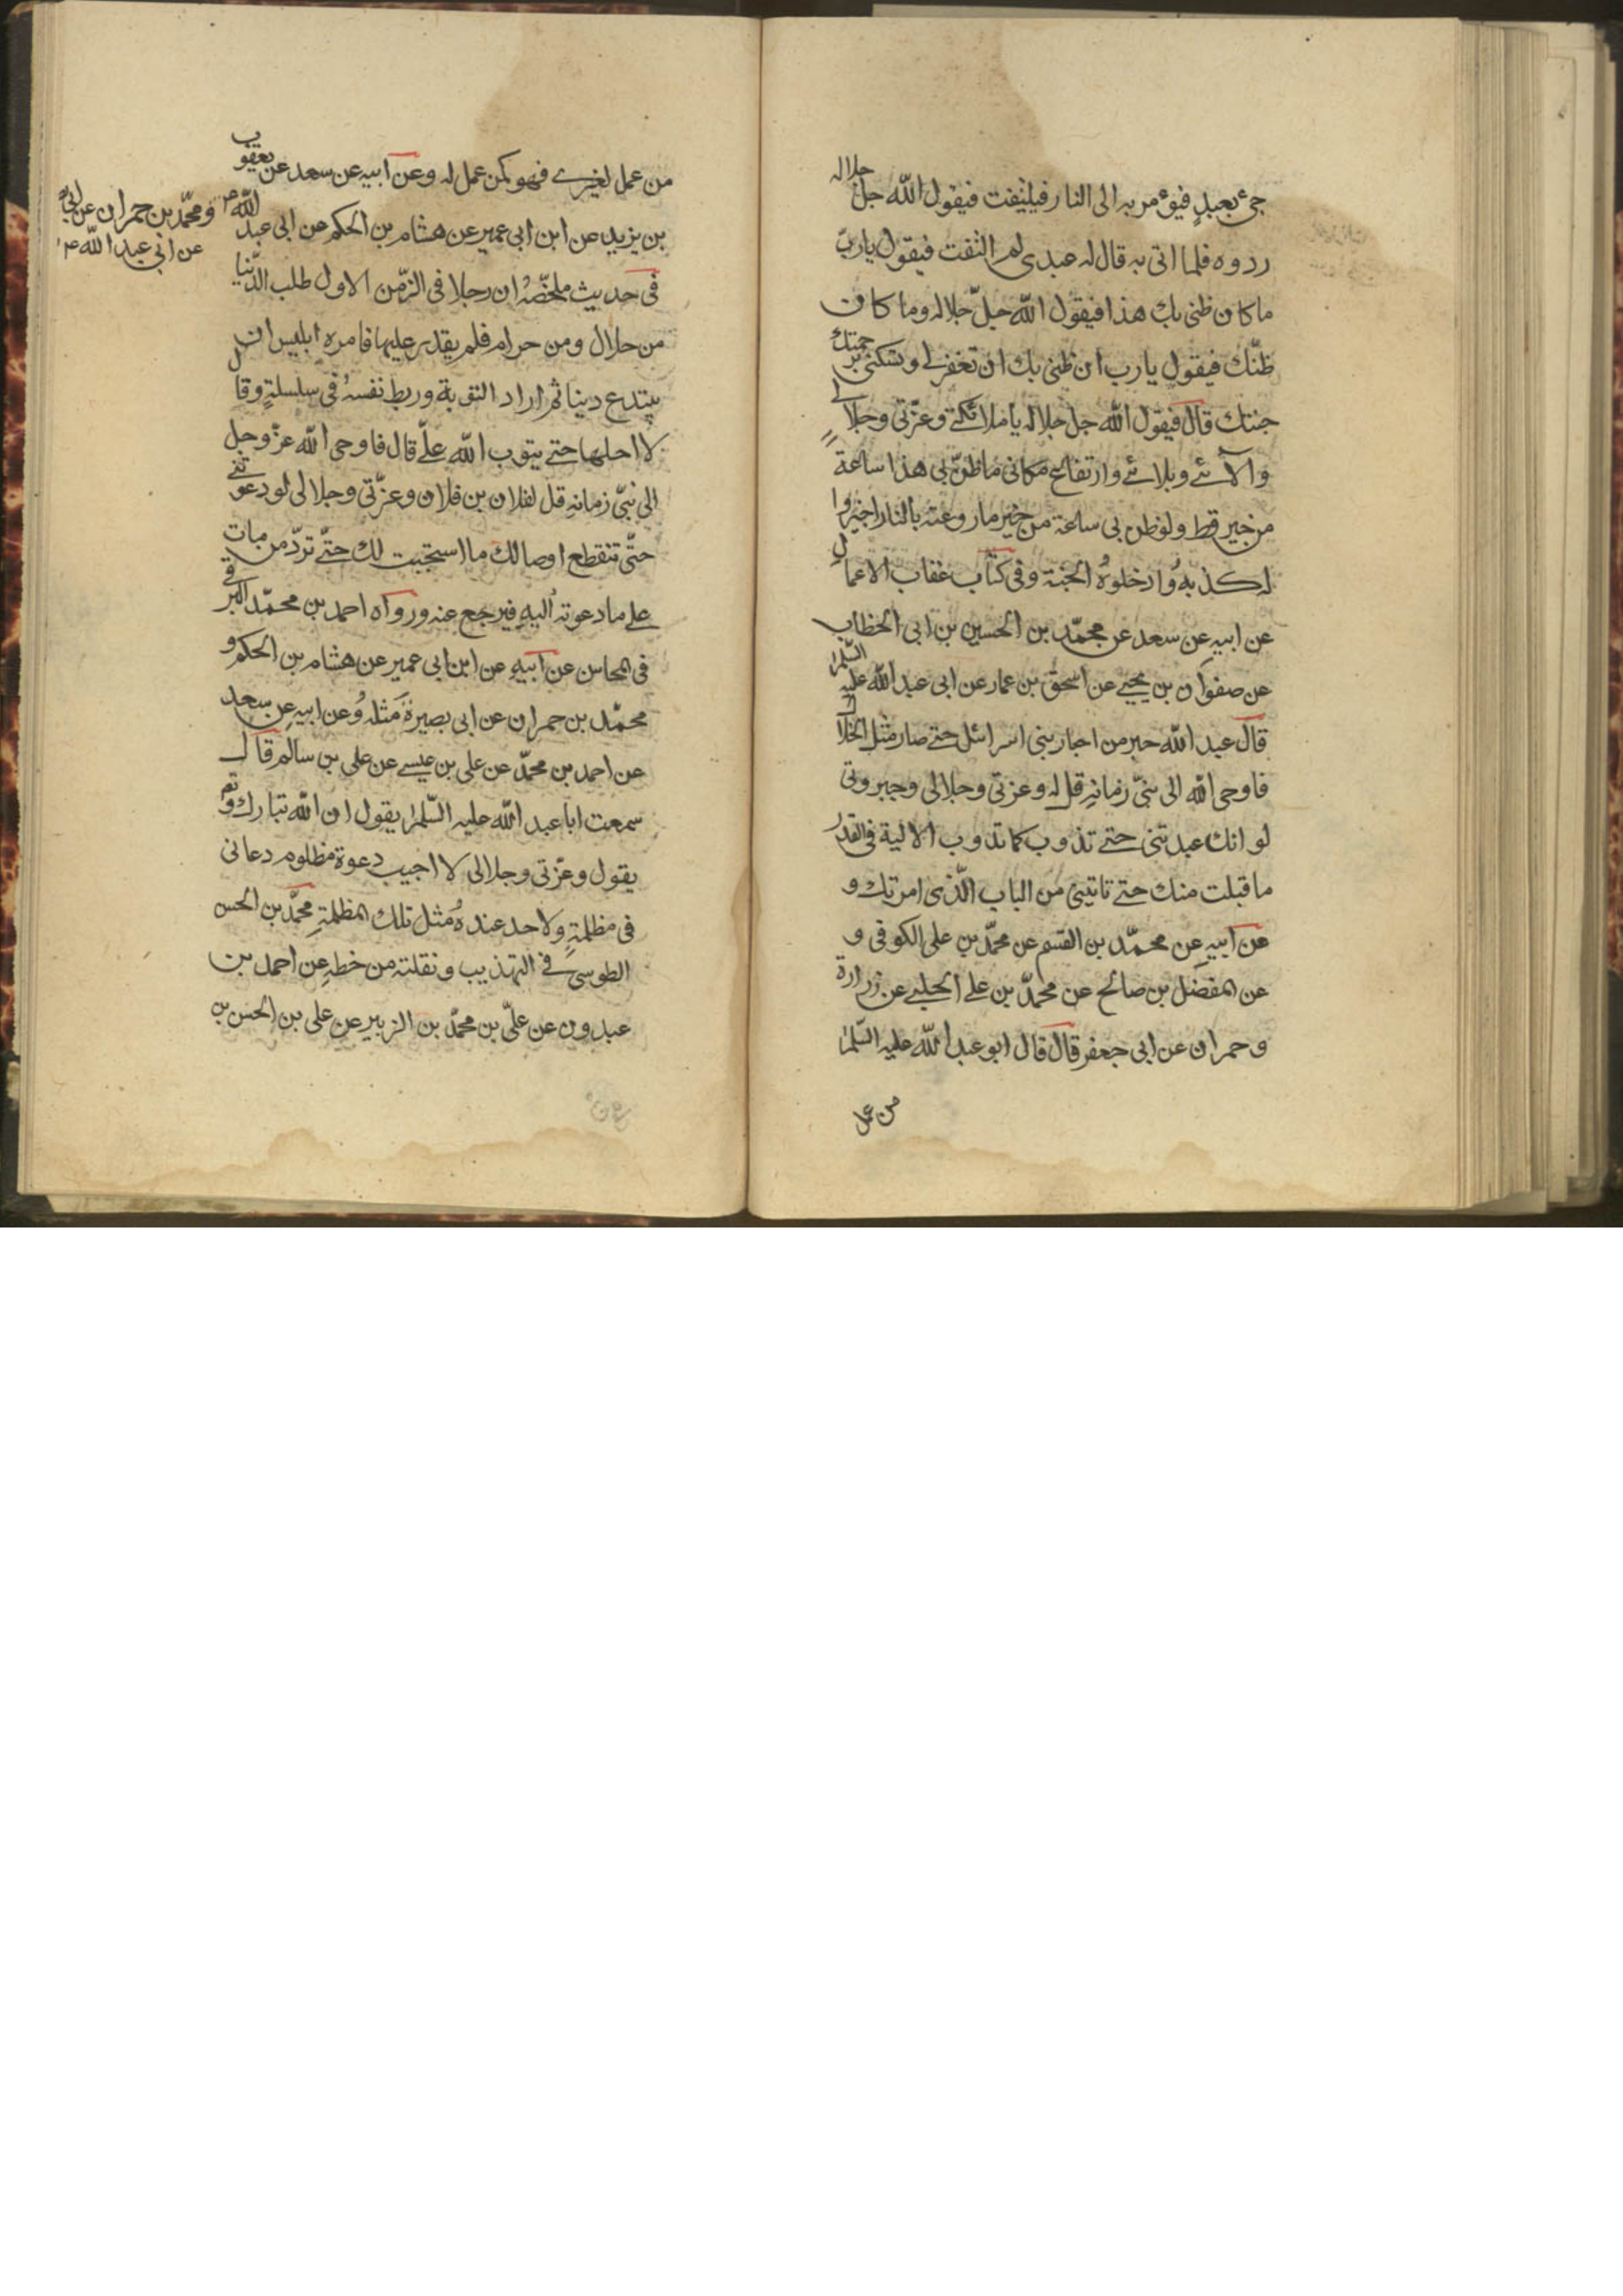 جئ بعبدٍ فيؤمر به الى النار فيلتفت فيقول الله جل جلاله
ردوه فلما اتى به قال له عبدى لم التفت فيقول يا ربّ
ما كان ظنى بك هذا فيقول الله جلّ جلاله وما كان
ظنّك فيقول يا رب ان ظنى بك ان تغفر لى وتسكننى برحمتك
جنتك قال فيقول الله جل جلاله يا ملائكتى وعزّتى وجلالى
وآلائى وبلائى وارتفاع مكانى ما ظنّ بى هذا ساعة
من خير قط ولو ظن بى ساعة من خير ما روعته بالنار اجيزوا
له كذبه وادخلوهُ الجنة وفى كتاب عقاب الاعمال
عن ابيه عن سعد عن محمّد بن الحسين بن ابى الخطاب
عن صفوان بن يحيى عن اسحق بن عمار عن ابى عبد الله عليه السّلم
قال عبد الله حبر من احبار بنى اسرائل حتى صار مثل الخلال
فاوحى الله الى نبىّ زمانهِ قل له وعزتى وجلالى وجبروتى
لو انك عبدتنى حتى تذوب كما تذوب الالية فى القدر
ما قبلت منك حتى تاتينى من الباب الّذى امرتك و
عن ابيهِ عن محمّد بن القسم عن محمّد بن على الكوفى و
عن المفضل بن صالح عن محمّد بن على الحلبى عن زرارة
وحمران عن ابى جعفر قال قال ابو عبد الله عليه السّلم
من عمل
من عمل لغيرى فهو كمن عمل له وعن ابيه عن سعد عن يعقوب
بن يزيد عن ابن ابى عمير عن هشام بن الحكم عن ابى عبد الله ع
ومحمّد بن حمران عن ابى
عن ابى عبد الله ع
فى حديث ملخّصهُ ان رجلا فى الزّمن الاول طلب الدّنيا
من حلال ومن حرام فلم يقدر عليها فامره ابليس ان
يبتدع دينا ثم اراد التوبة وربط نفسهُ فى سلسلةٍ وقال
لا احلها حتى يتوب الله علىّ قال فاوحى الله عزّ وجل
الى نبىّ زمانهِ قل لفلان بن فلان وعزّتى وجلالى لو دعوتنى
حتّى تنقطع اوصالك ما استجبت لك حتّى تردّ من مات
على ما دعوته اليهِ فيرجع عنه ورواه احمد بن محمّد البرقى
فى المحاسن عن ابيهِ عن ابن ابى عمير عن هشام بن الحكم و
محمّد بن حمران عن ابى بصيرة مثلهُ وعن ابيهِ عن سعد
عن احمد بن محمّد عن على بن عيسى عن على بن سالم قال
سمعت ابا عبد الله عليه السّلم يقول ان الله تبارك وتع
يقول وعزّتى وجلالى لا اجيب دعوة مظلوم دعانى
فى مظلمةٍ ولاحد عندهُ مثل تلك المظلمةِ محمّد بن الحسن
الطوسى فى التهذيب ونقلته من خطهِ عن احمد بن
عبدون عن علىّ بن محمّد بن الزبير عن على بن الحسن بن